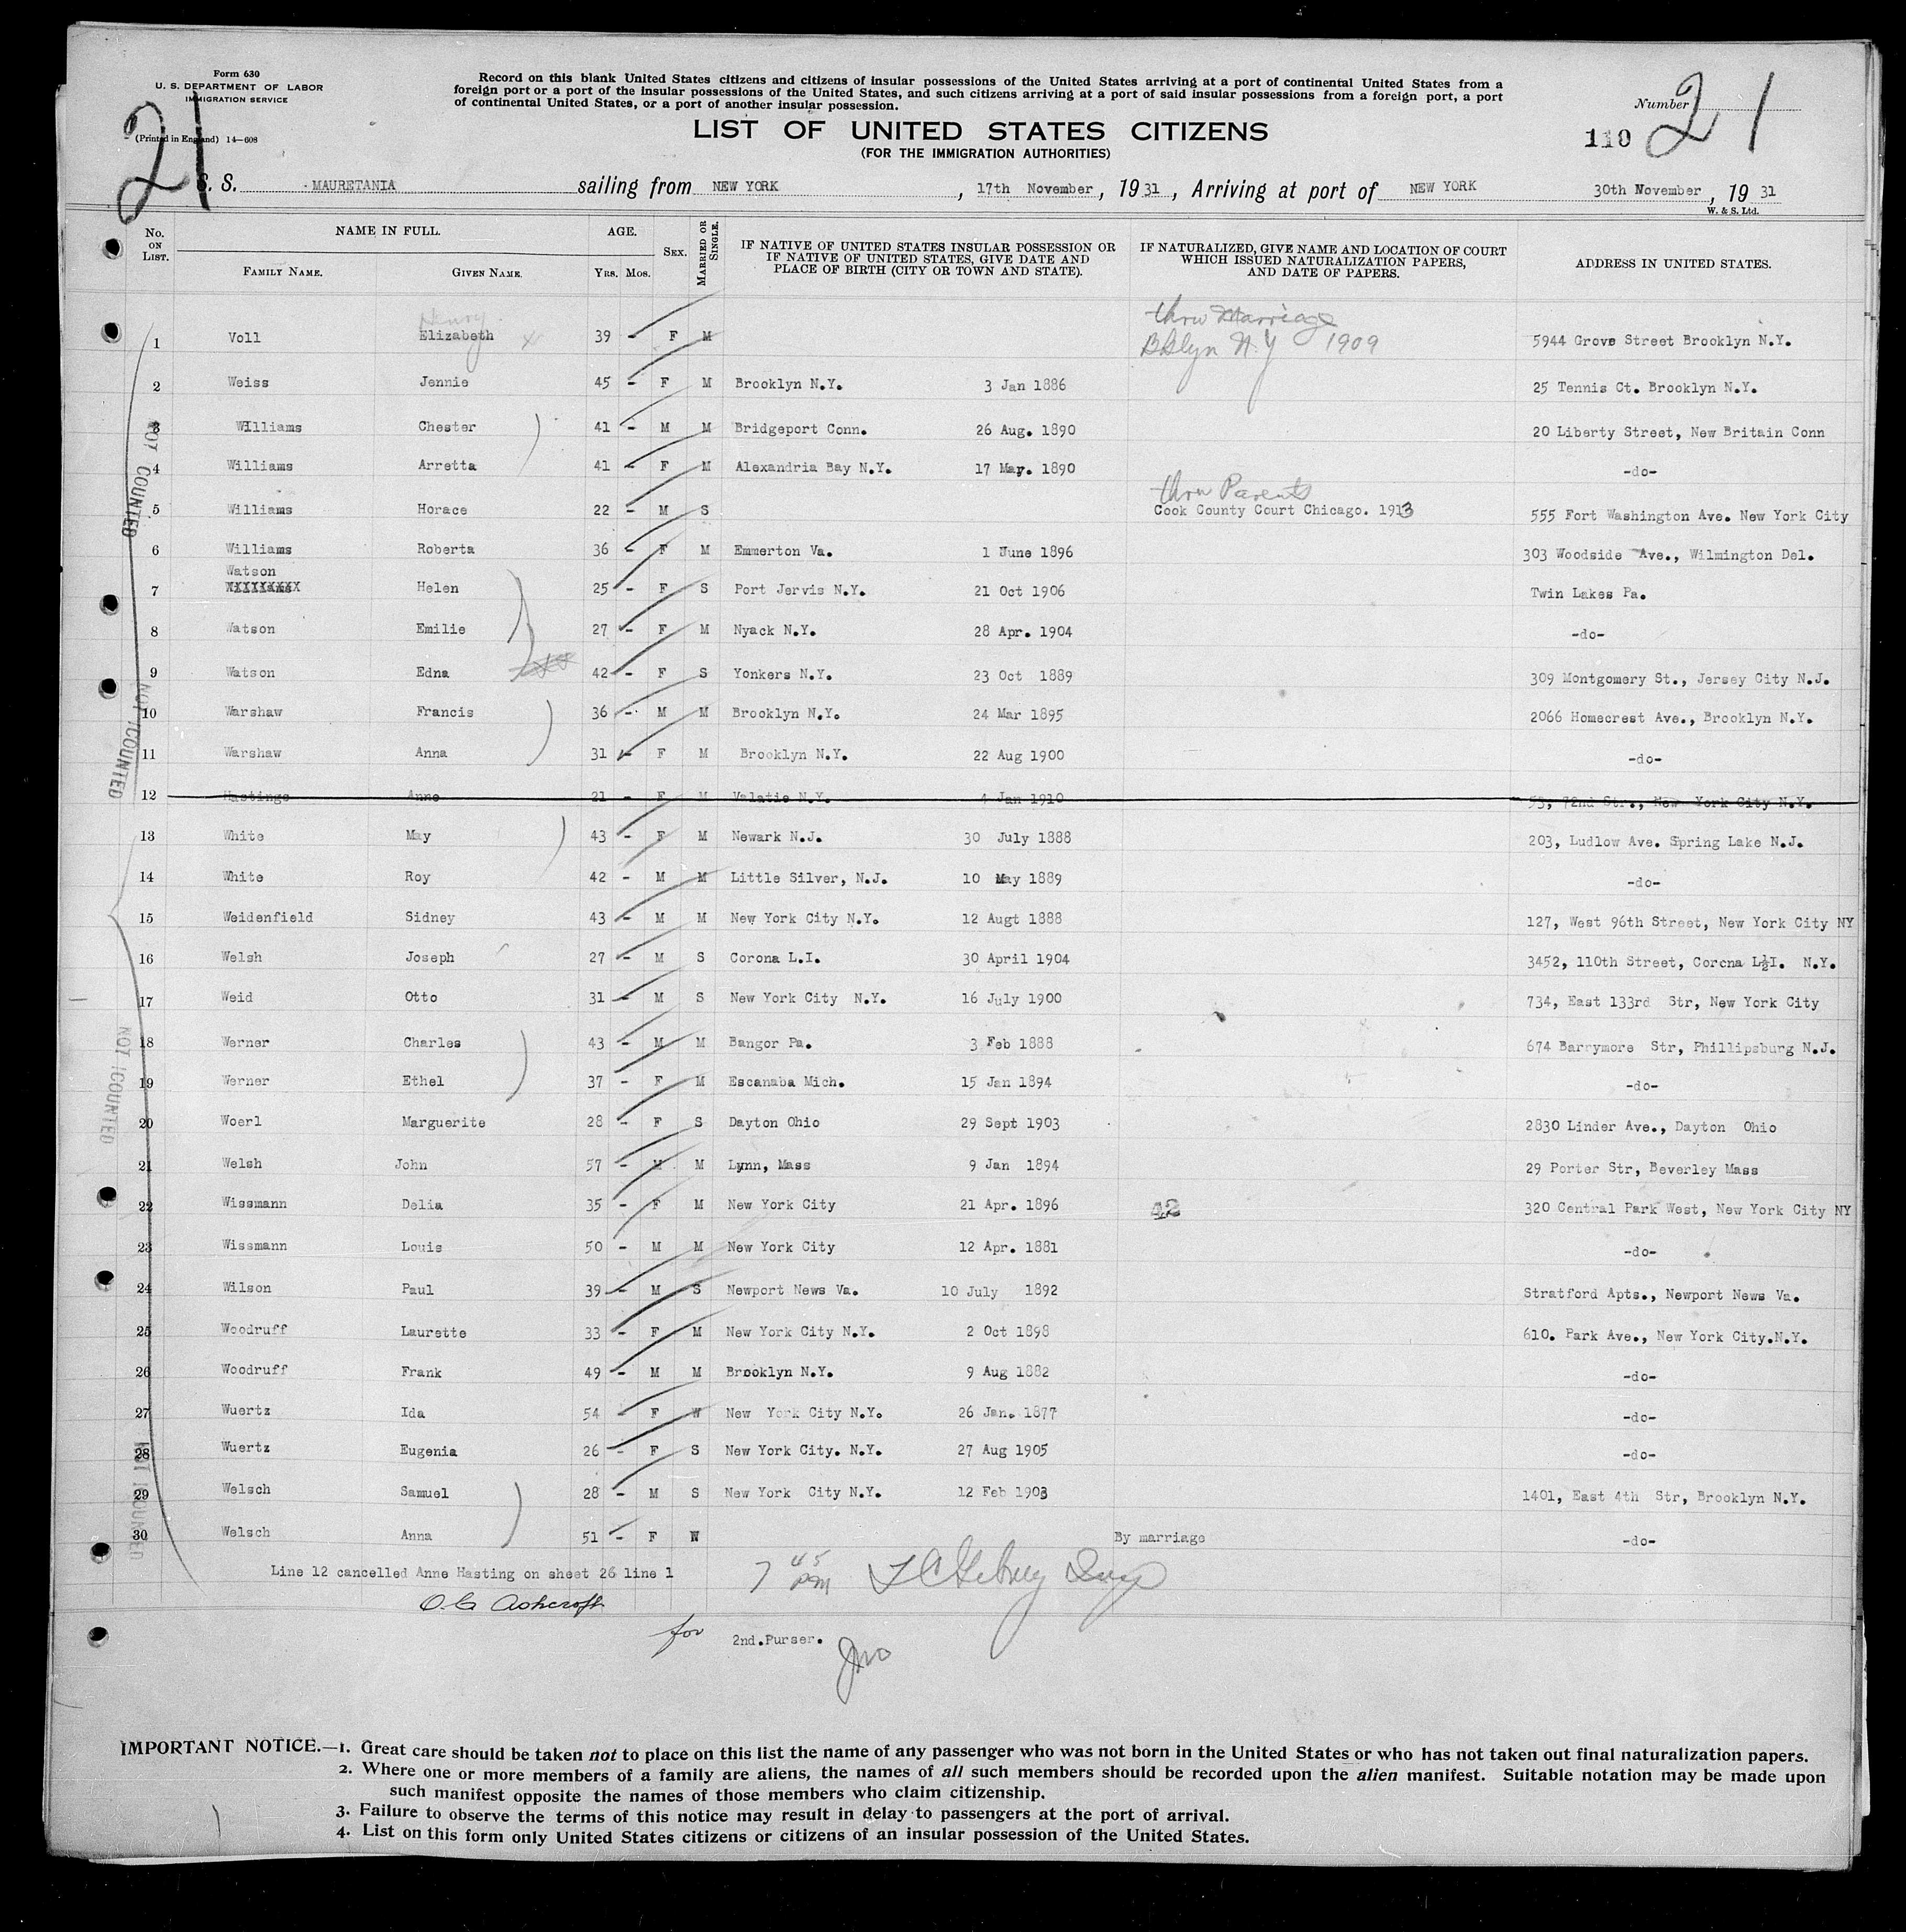 Form 630
U. S. DEPARTMENT OF LABOR
IMMIGRATION SERVICE
(Printed in England) 14—608
21
Record on this blank United States citizens and citizens of insular possessions of the United States arriving at a port of continental United States from a
foreign port or a port of the insular possessions of the United States, and such citizens arriving at a port of said insular possessions from a foreign port, a port
of continental United States, or a port of another insular possession.
Number 21
110
LIST OF UNITED STATES CITIZENS
(FOR THE IMMIGRATION AUTHORITIES)
S. S. MAURETANIA sailing from NEW YORK, 17th November, 1931, Arriving at port of NEW YORK 30th November, 19 31
W. & S. Ltd.
No. ON LIST. NAME IN FULL. FAMILY NAME. GIVEN NAME. AGE. YRS. MOS. SEX. MARRIED OR SINGLE. IF NATIVE OF UNITED STATES INSULAR POSSESSION OR IF NATIVE OF UNITED STATES, GIVE DATE AND PLACE OF BIRTH (CITY OR TOWN AND STATE). IF NATURALIZED, GIVE NAME AND LOCATION OF COURT WHICH ISSUED NATURALIZATION PAPERS, AND DATE OF PAPERS. ADDRESS IN UNITED STATES.
Henry thru Marriage
1 Voll Elizabeth x 39 - F M Bklyn N.Y 1909 5944 Grove Street Brooklyn N.Y.
2 Weiss Jennie 45 - F M Brooklyn N.Y. 3 Jan 1886 25 Tennis Ct. Brooklyn N.Y.
3 Williams Chester 41 - M M Bridgeport Conn. 26 Aug. 1890 20 Liberty Street, New Britain Conn
4 Williams Arretta 41 - F M Alexandria Bay N.Y. 17 May. 1890 -do-
thru Parents
5 Williams Horace 22 - M S Cook County Court Chicago. 1913 555 Fort Washington Ave. New York City
6 Williams Roberta 36 - F M Emmerton Va. 1 June 1896 303 Woodside Ave., Wilmington Del.
Watson
7 Helen 25 - F S Port Jervis N.Y. 21 Oct 1906 Twin Lakes Pa.
8 Watson Emilie 27 - F M Nyack N.Y. 28 Apr. 1904 -do-
9 Watson Edna 42 - F S Yonkers N.Y. 23 Oct 1889 309 Montgomery St., Jersey City N.J.
10 Warshaw Francis 36 - M M Brooklyn N.Y. 24 Mar 1895 2066 Homecrest Ave., Brooklyn N.Y.
11 Warshaw Anna 31 - F M Brooklyn N.Y. 22 Aug 1900 -do-
12 Hastings Anne 21 - F M Valatie N.Y. 4 Jan 1910 53, 72nd Str., New York City N.Y.
13 White May 43 - F M Newark N.J. 30 July 1888 203, Ludlow Ave. Spring Lake N.J.
14 White Roy 42 - M M Little Silver, N.J. 10 May 1889 -do-
15 Weidenfield Sidney 43 - M M New York City N.Y. 12 Augt 1888 127, West 96th Street, New York City NY
16 Welsh Joseph 27 - M S Corona L.I. 30 April 1904 3452, 110th Street, Corona L½I. N.Y.
17 Weid Otto 31 - M S New York City N.Y. 16 July 1900 734, East 133rd Str, New York City
18 Werner Charles 43 - M M Bangor Pa. 3 Feb 1888 674 Barrymore Str, Phillipsburg N.J.
19 Werner Ethel 37 - F M Escanaba Mich. 15 Jan 1894 -do-
20 Woerl Marguerite 28 - F S Dayton Ohio 29 Sept 1903 2830 Linder Ave., Dayton Ohio
21 Welsh John 57 - M M Lynn, Mass 9 Jan 1894 29 Porter Str, Beverley Mass
22 Wissmann Delia 35 - F M New York City 21 Apr. 1896 42 320 Central Park West, New York City NY
23 Wissmann Louis 50 - M M New York City 12 Apr. 1881 -do-
24 Wilson Paul 39 - M S Newport News Va. 10 July 1892 Stratford Apts., Newport News Va.
25 Woodruff Laurette 33 - F M New York City N.Y. 2 Oct 1898 610. Park Ave., New York City.N.Y.
26 Woodruff Frank 49 - M M Brooklyn N.Y. 9 Aug 1882 -do-
27 Wuertz Ida 54 - F W New York City N.Y. 26 Jan. 1877 -do-
28 Wuertz Eugenia 26 - F S New York City. N.Y. 27 Aug 1905 -do-
29 Welsch Samuel 28 - M S New York City N.Y. 12 Feb 1903 1401, East 4th Str, Brooklyn N.Y.
30 Welsch Anna 51 - F W By marriage -do-
NOT COUNTED
NOT COUNTED
NOT COUNTED
NOT COUNTED
Line 12 cancelled Anne Hasting on sheet 26 line 1
7 45 PM
O. G Ashcroft
for 2nd.Purser.
IMPORTANT NOTICE.—1. Great care should be taken not to place on this list the name of any passenger who was not born in the United States or who has not taken out final naturalization papers.
2. Where one or more members of a family are aliens, the names of all such members should be recorded upon the alien manifest. Suitable notation may be made upon
such manifest opposite the names of those members who claim citizenship.
3. Failure to observe the terms of this notice may result in delay to passengers at the port of arrival.
4. List on this form only United States citizens or citizens of an insular possession of the United States.